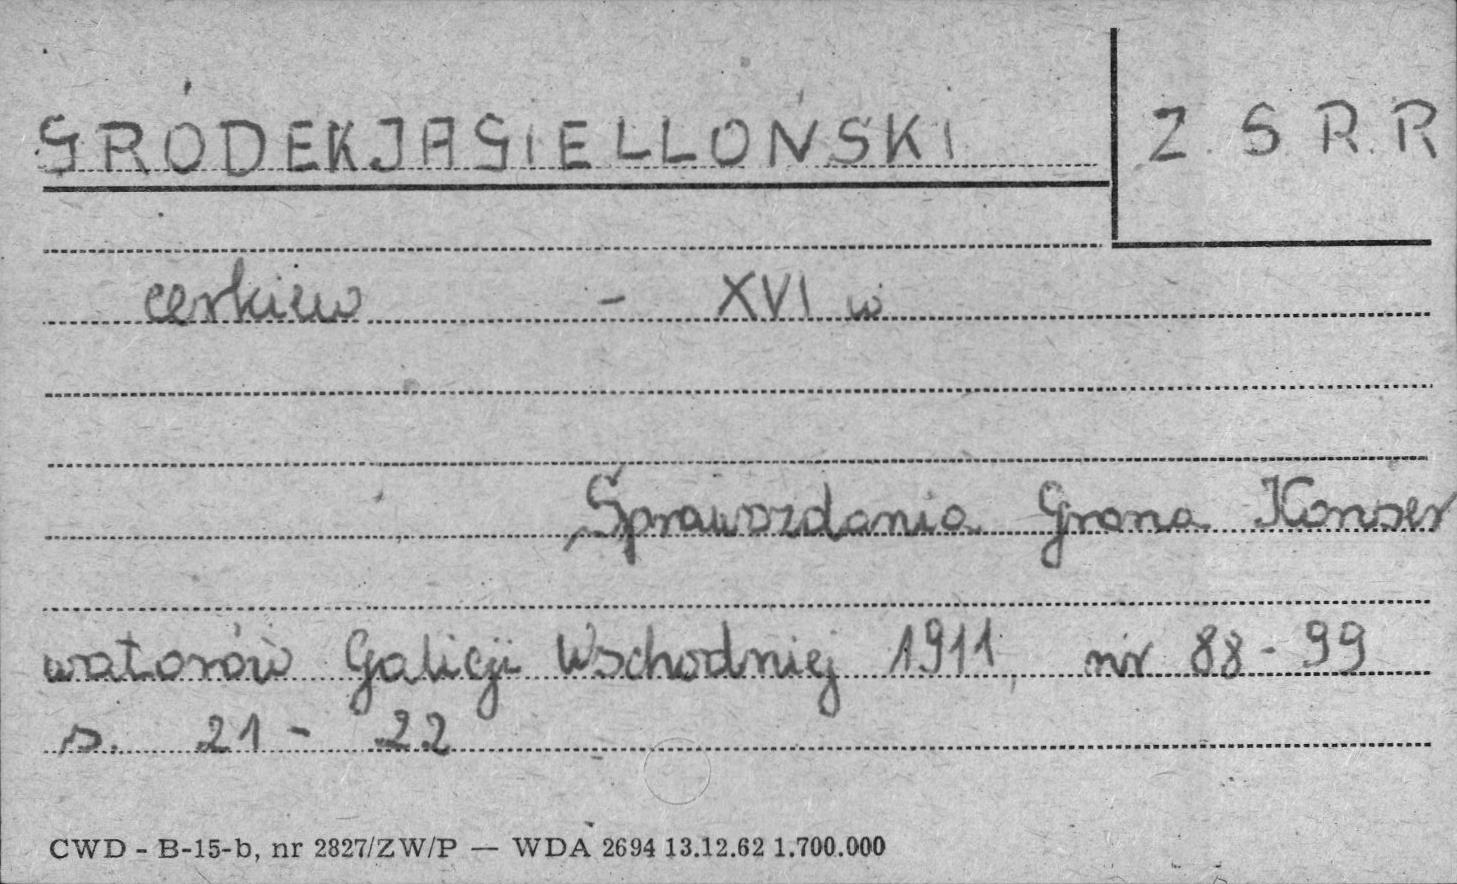 GRÓDEK JAGIELLOŃSKI
Z.S.R.R
cerkiew - XVI w
Sprawozdania Grona Konser
watorów Galicji Wschodniej 1911, nr 88-99
s. 21-22
CWD - B-15-b, nr 2827/ZW/P — WDA 2694 13.12.62 1.700.000